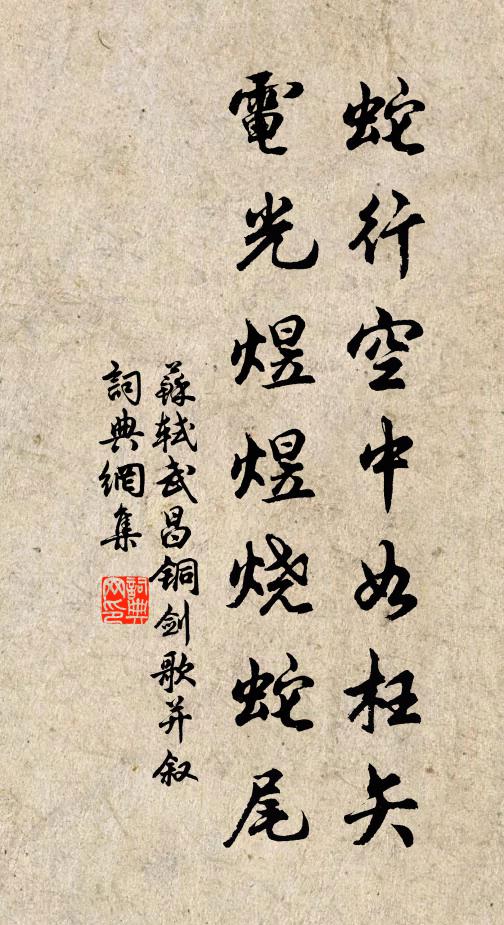 蛇行空中如枉矢
電光煜煜烧蛇尾
蘇軾武昌铜剑歌并叙
詞典網集
詞典网印